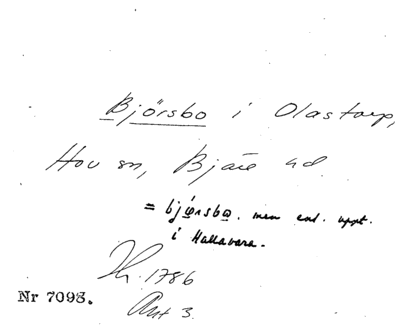 Björsbo i Olastorp,
Hov sn, Bjäre hd
= bjø̱rsbo̱. men enl. uppt.
i Hallavara.
Jh. 1786
Nr 7093. Ant 3.